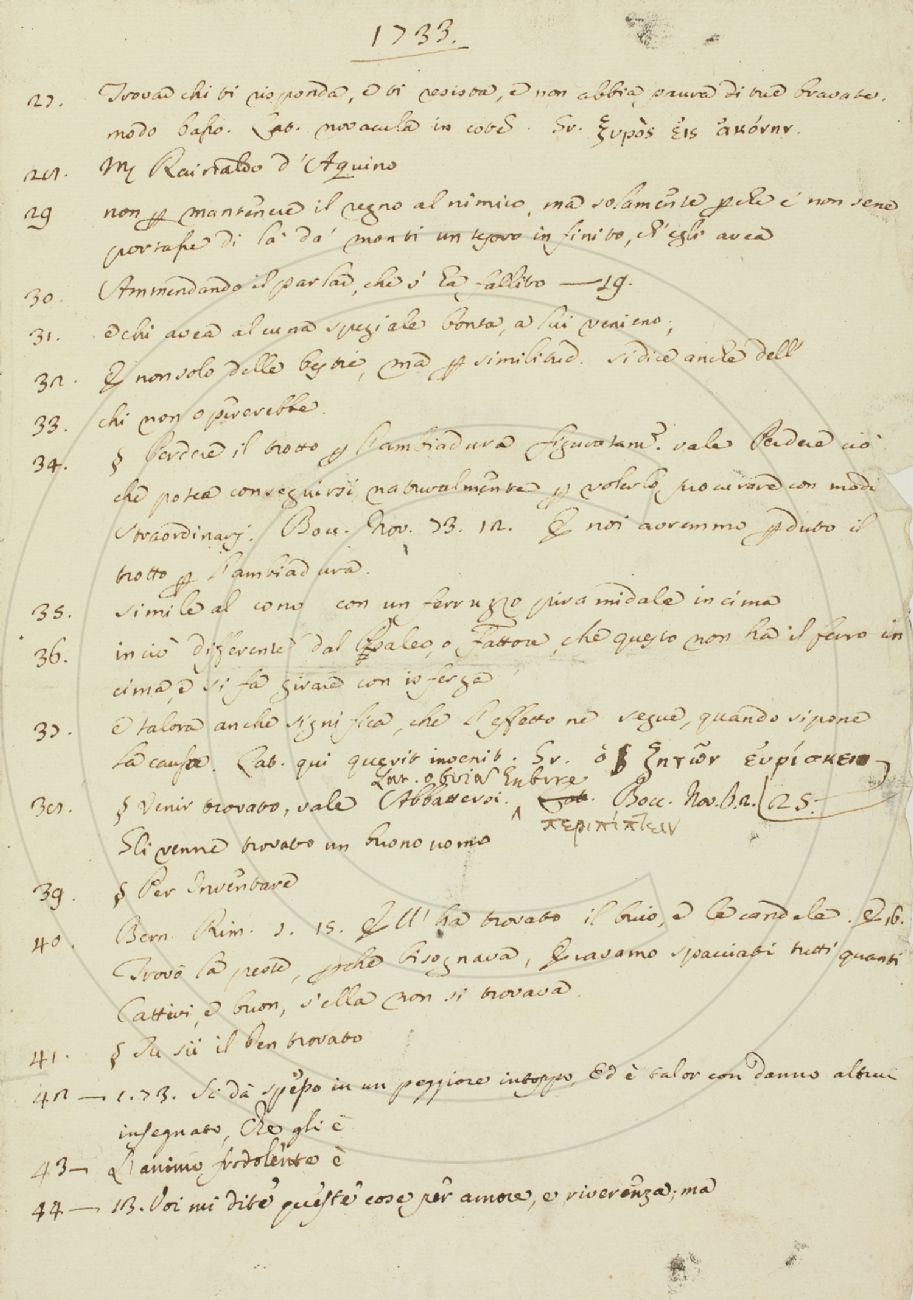 1733.
27. Trovare chi ti risponda, e ti resista, e non abbia paura di tue bravate.
modo basso. Lat. novacula in cotem. Gr. ξυρὸς εἰς ἀκόνην.
28. M. Rainaldo d'Aquino
29 non p mantenere il regno al nimico, ma solamente pche e' non sene
portasse di la da' monti un tesoro infinito, ch'egli avea
30. Ammendando il parlar, che s' ha fallito — 19.
31. e chi avea alcuna speziale bonta, a lui venieno;
32. E non solo delle bestie, ma p similitud. si dice anche dell'
33. chi non opererebbe.
34. § Perdere il trotto p l'ambiadura figuratam.e vale Perdere ciò
che potea conseguirsi naturalmente p volerlo procurare con modi
straordinarj. Bocc. Nov. 73. 12. E noi avremmo pduto il
trotto p l'ambiadura.
35. simile al cono con un ferruzzo piramidale in cima
36. in ciò differente dal Paleo, o Fattore, che questo non ha il ferro in
cima, e si fa girare con isferza
37. e talora anche significa, che l'effetto ne segue, quando si pone
la causa. Lat. qui quaerit invenit. Gr. ὁ ζητῶν εὑρίσκει
Lat. obviam
38. § Venir trovato, vale Abbattersi. Bocc. Nov. 12. 25.
περιπίπτειν
Gli venne trovato un buono uomo
39. § Per Inventare
40. Bern. Rim. 1. 15. E ll' ha trovato il buio, e le candele. E 16.
Trovò la peste, pche bisognava, Eravamo spacciati tutti quanti
Cattivi, e buon, s'ella non si trovava.
41. § Tu sii il ben trovato
42 — 1.73. Si dà spesso in un peggiore intoppo, Ed è talor con danno altrui
insegnato, Che gli è
43 — L'animo frodolente è
44 — 13. Voi mi dite queste cose per amore, e riverenza; ma